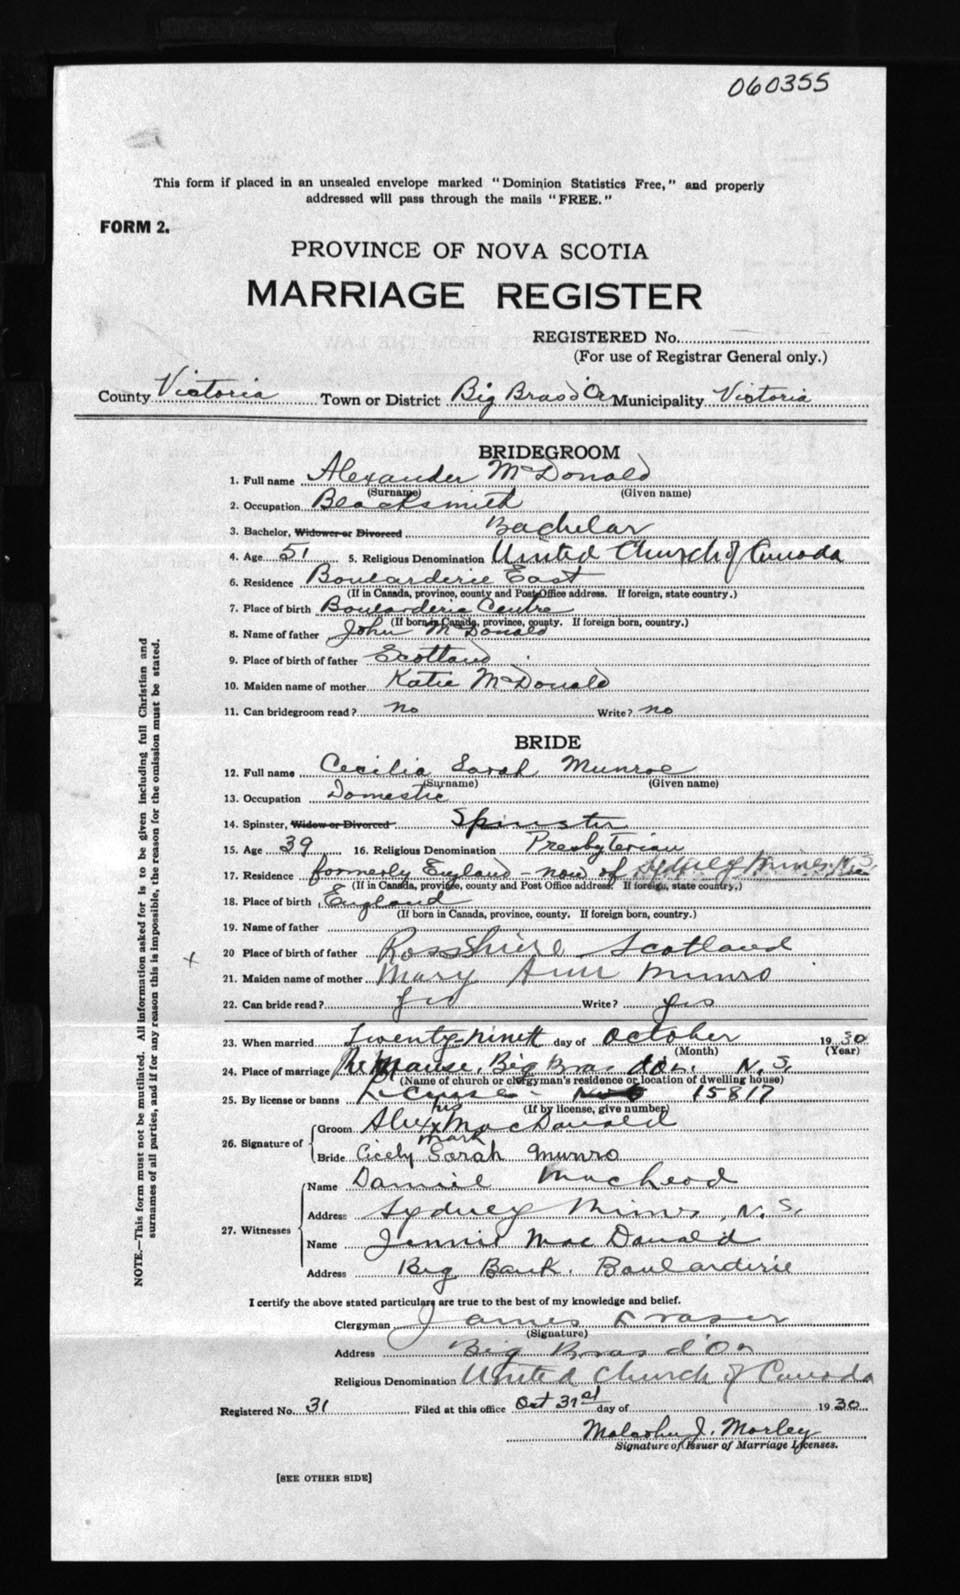 060355
This form if placed in an unsealed envelope marked "Dominion Statistics Free," and properly
addressed will pass through the mails "FREE."
FORM 2.
PROVINCE OF NOVA SCOTIA
MARRIAGE REGISTER
REGISTERED No.
(For use of Registrar General only.)
County Victoria Town or District Big Bras d'Or Municipality Victoria
BRIDEGROOM
1. Full name Alexander McDonald
(Surname) (Given name)
2. Occupation Blacksmith
3. Bachelor, Widower or Divorced Bachelar
4. Age 51 5. Religious Denomination United Church of Canada
6. Residence Boularderie East
(If in Canada, province, county and Post Office address. If foreign, state country.)
7. Place of birth Boularderie Centre
(If born in Canada, province, county. If foreign born, country.)
8. Name of father John McDonald
9. Place of birth of father Scotland
10. Maiden name of mother Katie McDonald
11. Can bridegroom read? no Write? no
BRIDE
12. Full name Cecilia Sarah Munroe
(Surname) (Given name)
13. Occupation Domestic
14. Spinster, Widow or Divorced Spinster
15. Age 39 16. Religious Denomination Presbyterian
17. Residence formerly England - now of Sydney Mines N.S.
(If in Canada, province, county and Post Office address. If foreign, state country.)
18. Place of birth England
(If born in Canada, province, county. If foreign born, country.)
19. Name of father
20 Place of birth of father Rosshire Scotland
21. Maiden name of mother Mary Ann Munro
22. Can bride read? yes Write? yes
23. When married Twenty-Ninth day of October 1930
(Month) (Year)
24. Place of marriage The Manse, Big Bras d'Or. N.S.
(Name of church or clergyman's residence or location of dwelling house)
25. By license or banns License - No 15817
(If by license, give number)
26. Signature of Groom Alex his x mark MacDonald
Bride Cicely Sarah Munro
27. Witnesses Name Daniel MacLeod
Address Sydney Mines, N.S.
Name Jennie MacDonald
Address Big Bank. Boularderie
I certify the above stated particulars are true to the best of my knowledge and belief.
Clergyman James Fraser
(Signature)
Address Big Bras d'Or
Religious Denomination United Church of Canada
Registered No. 31 Filed at this office Oct 31st day of 1930
Malcolm J. Morley
Signature of Issuer of Marriage Licenses.
[SEE OTHER SIDE]
NOTE.—This form must not be mutilated. All information asked for is to be given including full Christian and
surnames of all parties, and if for any reason this is impossible, the reason for the omission must be stated.
x